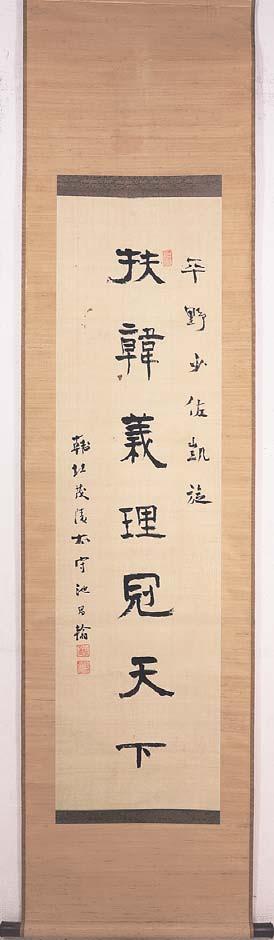 平野少佐凱旋
扶韓義理冠天下
韓北茂陵太守池昌翰